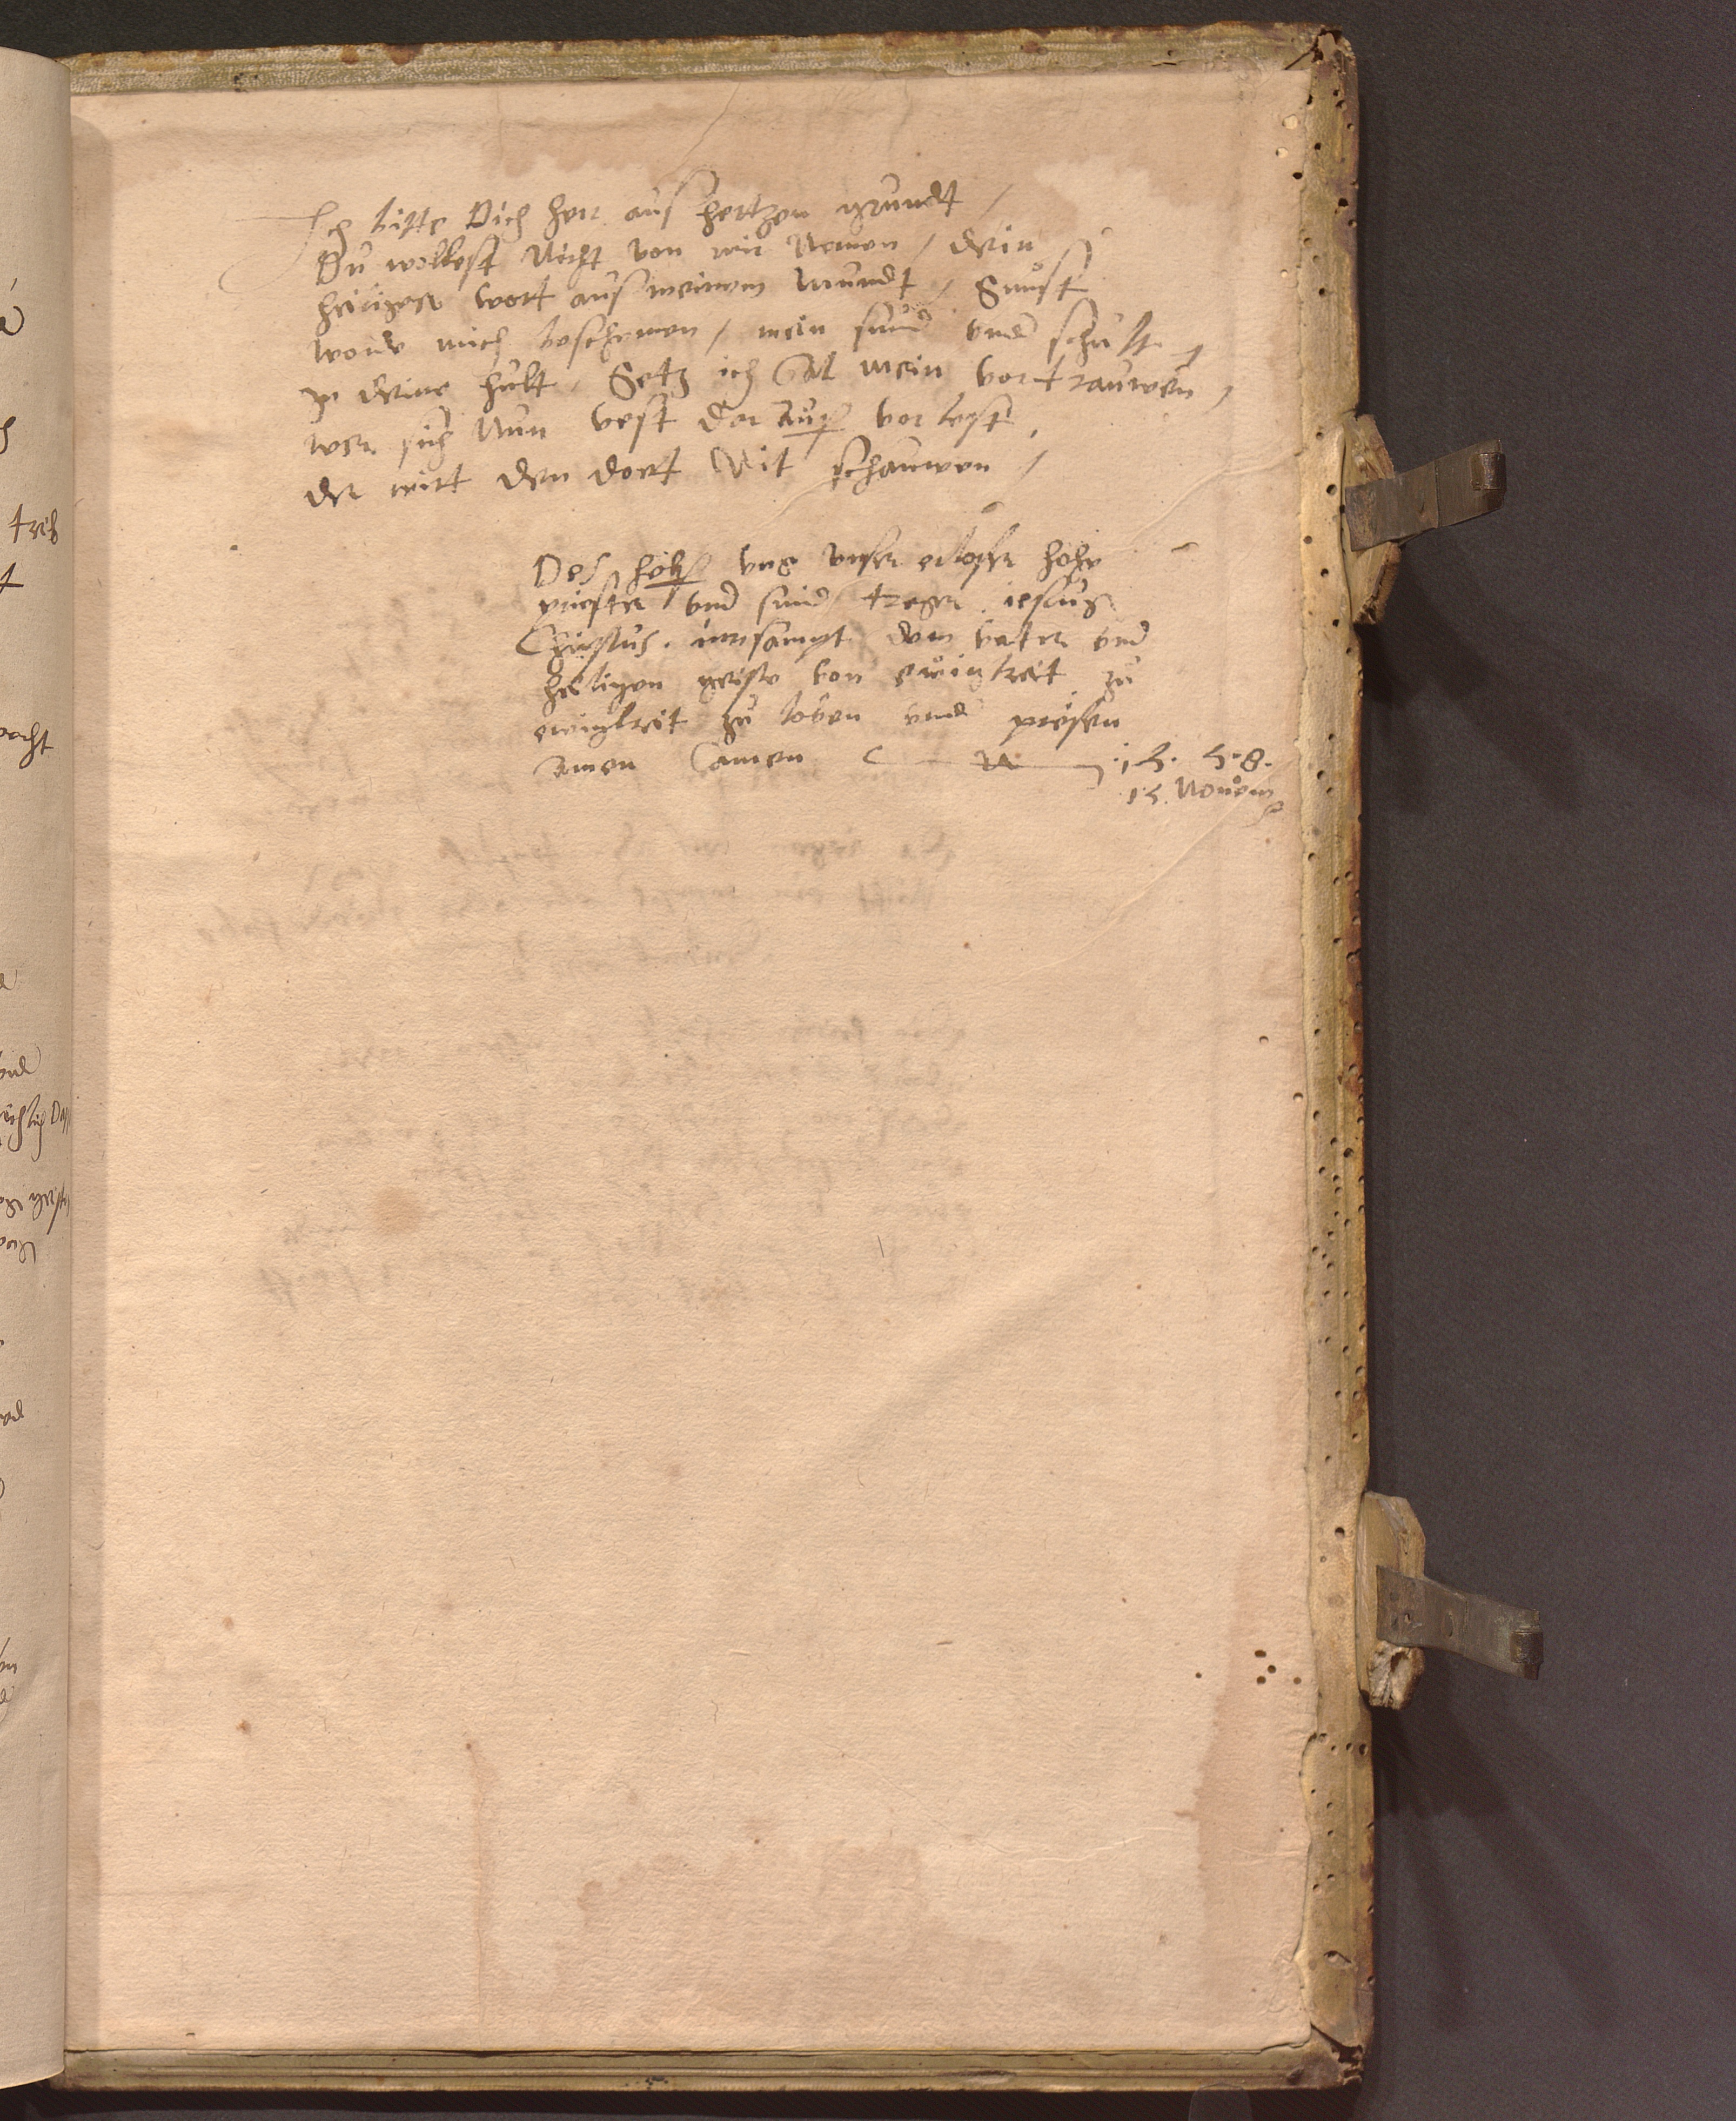 Ich bitte Dich herr aus hertzen grundt /
Du wollest Nicht von mir Nemen / dein
heiliges wort aus meinem Mundt / Sunst
worde mich beschemen / mein sund vnd schult
In deine hult Setz ich Al mein vortrauwen /
wer sich Nun vest dar auff vorlest
der wirt den dort Nit schauwen /
Des helff vns vnser erloser hohe
priester vnd sund treger iesus
Christus mitsampt dem vater vnd
heiligen geiste von ewigkeit zu
ewigkeit zu loben vnd preisen
Amen Camen
15. 58.
15. Novem
treb
t